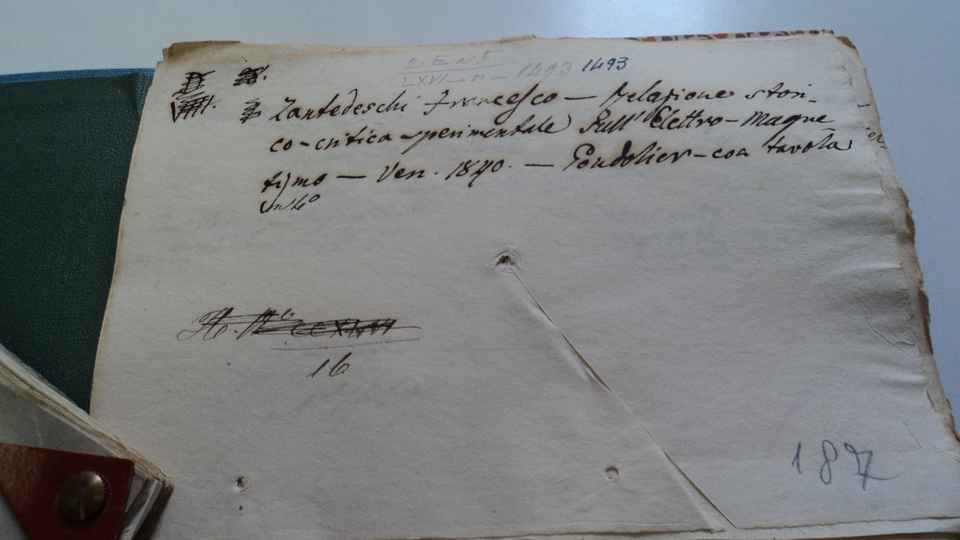 1493 1493
Zantedeschi Francesco — Relazione stori-
co-critica sperimentale sull'Elettro-Magne
tismo — Ven. 1840. — Gondolier - con tavola
in 4º
16
187